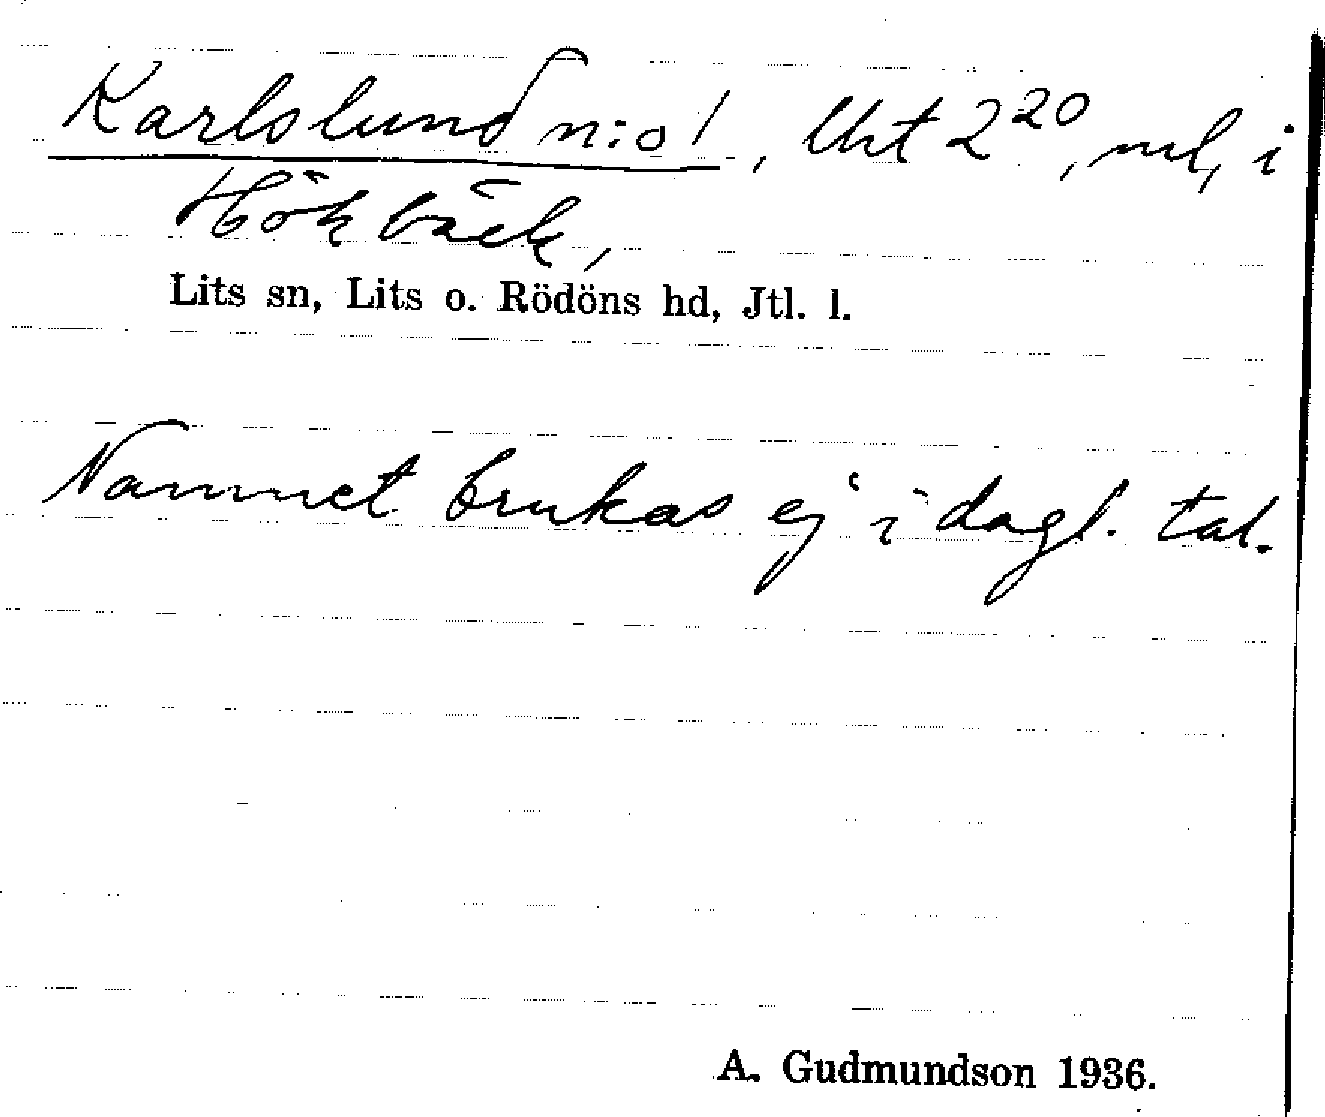 Karlslund n:o 1, Uht 2²⁰, ml, i
Hökbäck,
Lits sn, Lits o. Rödöns hd, Jtl. l.
Namnet brukas ej i dagl. tal.
A. Gudmundson 1936.